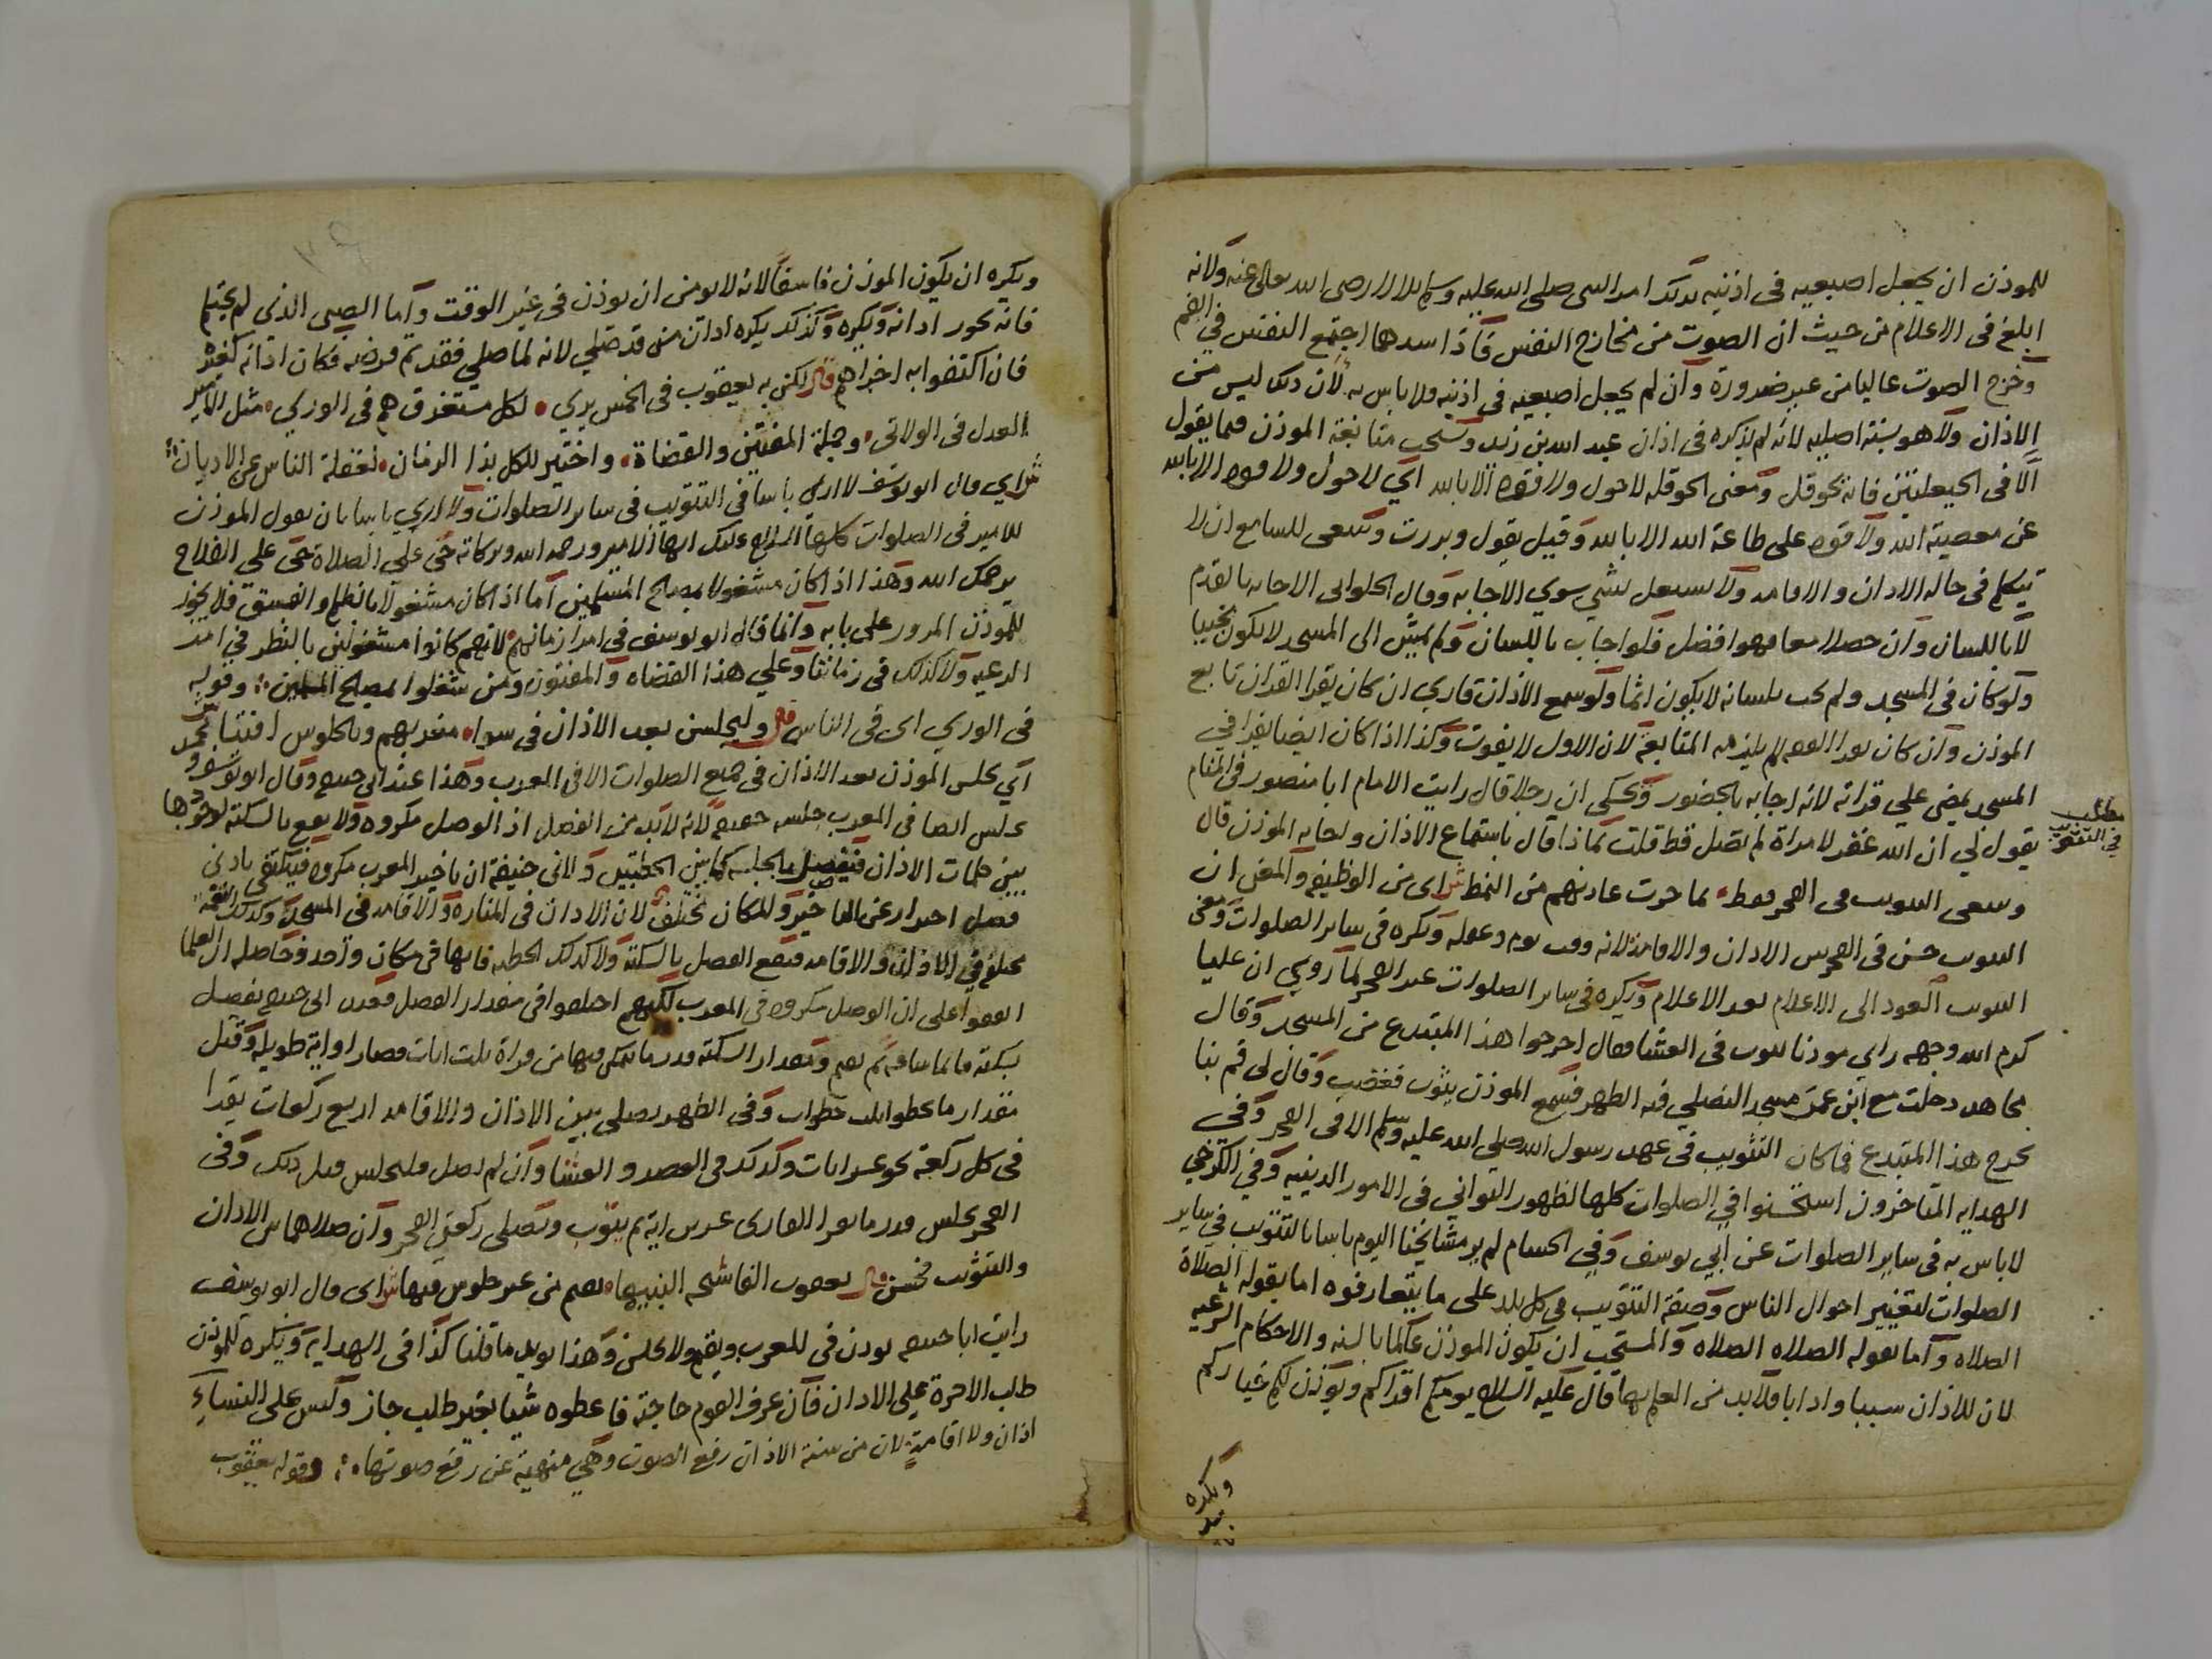 للموذن ان يجعل اصبعيه في اذنيه بذلك امر النبى صلى الله عليه وسلم بلالا رضى الله تعالى عنه ولانه
ابلغ فى الاعلام من حيث ان الصوت من مخارج النفس فاذا سدهما اجتمع النفس في الفم
وخرج الصوت عاليا من غير ضرورة وان لم يجعل اصبعيه فى اذنيه ولا باس به لان ذلك ليس من
الاذان ولا هو سنة اصليه لانه لم يذكره فى اذان عبد الله بن زيد وتستحب متابعة الموذن فيما يقول
الا فى الحيعلتين فانه يحوقل ومعنى الحوقله لا حول ولا قوه الا بالله اي لا حول ولا قوه الا بالله
عن معصية الله ولا قوه على طاعة الله الا بالله وقيل يقول وبررت وينبغى للسامع ان لا
يتكلم فى حاله الاذان والاقامه ولا يشتغل بشي سوي الاجابه وقال الحلوانى الاجابه بالقدم
لا باللسان وان حصلا معا فهو افضل فلو اجاب باللسان ولم يمش الى المسجد لا يكون مجيبا
ولو كان فى المسجد ولم يجب بلسانه لا يكون اثما ولو سمع الاذان قاري ان كان يقرا القران تابع
الموذن وان كان يقرا الفقه لم يلزمه المتابعة لان الاول لا يفوت وكذا اذا كان ايضا يقرا في
المسجد يمضي علي قراته لانه اجابه بالحضور ويحكي ان رجلا قال رايت الامام ابا منصور فى المنام
مطلب في التثويب
يقول لي ان الله غفر لامراة لم تصل قط قلت بماذا قال باستماع الاذان واجابه الموذن قال
وينبغى التثويب فى الفجر فقط بما جرت عادتهم من النمط ش اى من الوظيفه والمعنى ان
التثويب حسن فى الفجر بين الاذان والاقامة لانه وقت نوم وغفله ويكره فى ساير الصلوات ومعنى
التثويب العود الى الاعلام بعد الاعلام ويكره فى ساير الصلوات غير الفجر لما روي ان عليا
كرم الله وجهه راى موذنا يثوب فى العشا فقال اخرجوا هذا المبتدع من المسجد وقال
مجاهد دخلت مع ابن عمر مسجدا نصلي فيه الظهر فسمع الموذن يثوب فغضب وقال لى قم بنا
نخرج هذا المبتدع فما كان التثويب فى عهد رسول الله صلى الله عليه وسلم الا فى الفجر وفى
الهدايه المتاخرون استحسنوا في الصلوات كلها لظهور التوانى فى الامور الدينيه وفي الكرخي
لا باس به فى ساير الصلوات عن ابي يوسف وفي لم ير مشايخنا اليوم باسا بالتثويب فى ساير
الصلوات لتغيير احوال الناس وصفة التثويب فى كل بلد على ما يتعارفوه اما بقوله الصلاة
الصلاه واما بقوله الصلاه الصلاه والمستحب ان يكون الموذن عالما بالسنه والاحكام الشرعيه
لان للاذان سببا وادابا فلا بد من العلم بها قال عليه السلام يومكم اقراكم ويوذن لكم خياركم
ويكره
ويكره ان يكون الموذن فاسقا لانه لا يومن ان يوذن فى غير الوقت واما الصبى الذي لم يحتلم
فانه يجوز اذانه ويكره وكذلك يكره اذان من قد صلي لانه لما صلي فقد تم فرضه فكان اذانه كغيره
فان اكتفوا به اجزاهم قال لكن به يعقوب فى الخمس يري لكل مستغرق هم فى الوري مثل الامير
العدل فى الولاتى وجملة المفتين والقضاة واختير للكل بذا الزمان لغفلة الناس عن الاديان
ش اي قال ابو يوسف لا اري باسا فى التثويب فى ساير الصلوات ولا اري باسا بان يقول الموذن
للامير فى الصلوات كلها السلام عليك ايها الامير ورحمة الله وبركاته حي علي الصلاة حى على الفلاح
يرحمك الله وهذا اذا كان مشغولا بمصالح المسلمين اما اذا كان مشغولا بالظلم والفسق فلا يجوز
للموذن المرور على بابه وانما قال ابو يوسف فى امرا زمانهم لانهم كانوا مشغولين بالنظر في امر
الرعيه ولا كذلك فى زماننا وعلي هذا القضاه والمفتون ومن شغلوا بمصالح المسلمين وقوله
فى الوري اى فى الناس قال وليجلسن بعد الاذان فى سوا مغربهم وبالجلوس افتنا ش
اي يجلس الموذن بعد الاذان فى جميع الصلوات الا فى المغرب وهذا عند ابى حنيفه وقال ابو يوسف ومحمد
يجلس ايضا فى المغرب جلسه خفيفه لانه لا بد من الفصل اذ الوصل مكروه ولا يقع بالسكته لوجودها
بين كلمات الاذان فيفصل بالجلسه كما بين الخطبتين ولابى حنيفة ان تاخير المغرب مكروه فيكتفى بادنى
فصل احترازا عن التاخير والمكان مختلف لان الاذان فى المناره والاقامه فى المسجد وكذلك النغمة
تختلف في الاذان والاقامه فيقع الفصل بالسكته ولا كذلك الخطبه فانها فى مكان واحد وحاصله ان العلما
اتفقوا على ان الوصل مكروه فى المغرب لكنهم اختلفوا فى مقدار الفصل فعند ابى حنيفه يفصل
بسكته قايما ساعه ثم يقيم ومقدار السكته قدر ما يتمكن فيها من قراة ثلث ايات قصار او اية طويله وقيل
مقدار ما يخطو ثلث خطوات وفى الظهر يصلى بين الاذان والاقامه اربع ركعات يقرا
فى كل ركعة نحو عشر ايات وكذلك فى العصر والعشا وان لم يصل فليجلس قدر ذلك وفى
الفجر يجلس قدر ما يقرا القارى عشرين اية ثم يثوب ويصلى ركعتى الفجر وان صلاهما بين الاذان
والتثويب فحسن قال يعقوب الفاشحه النبيها يقيم من غير جلوس فيها ش اى قال ابو يوسف
رايت ابا حنيفه يوذن فى المغرب ويقيم ولا يجلس وهذا يويد ما قلنا كذا فى الهدايه ويكره للموذن
طلب الاجرة على الاذان فان عرف القوم حاجته فاعطوه شيا بغير طلب جاز وليس على النساء
اذان ولا اقامة لان من سنة الاذان رفع الصوت وهي منهية عن رفع صوتها وقوله يعقوب